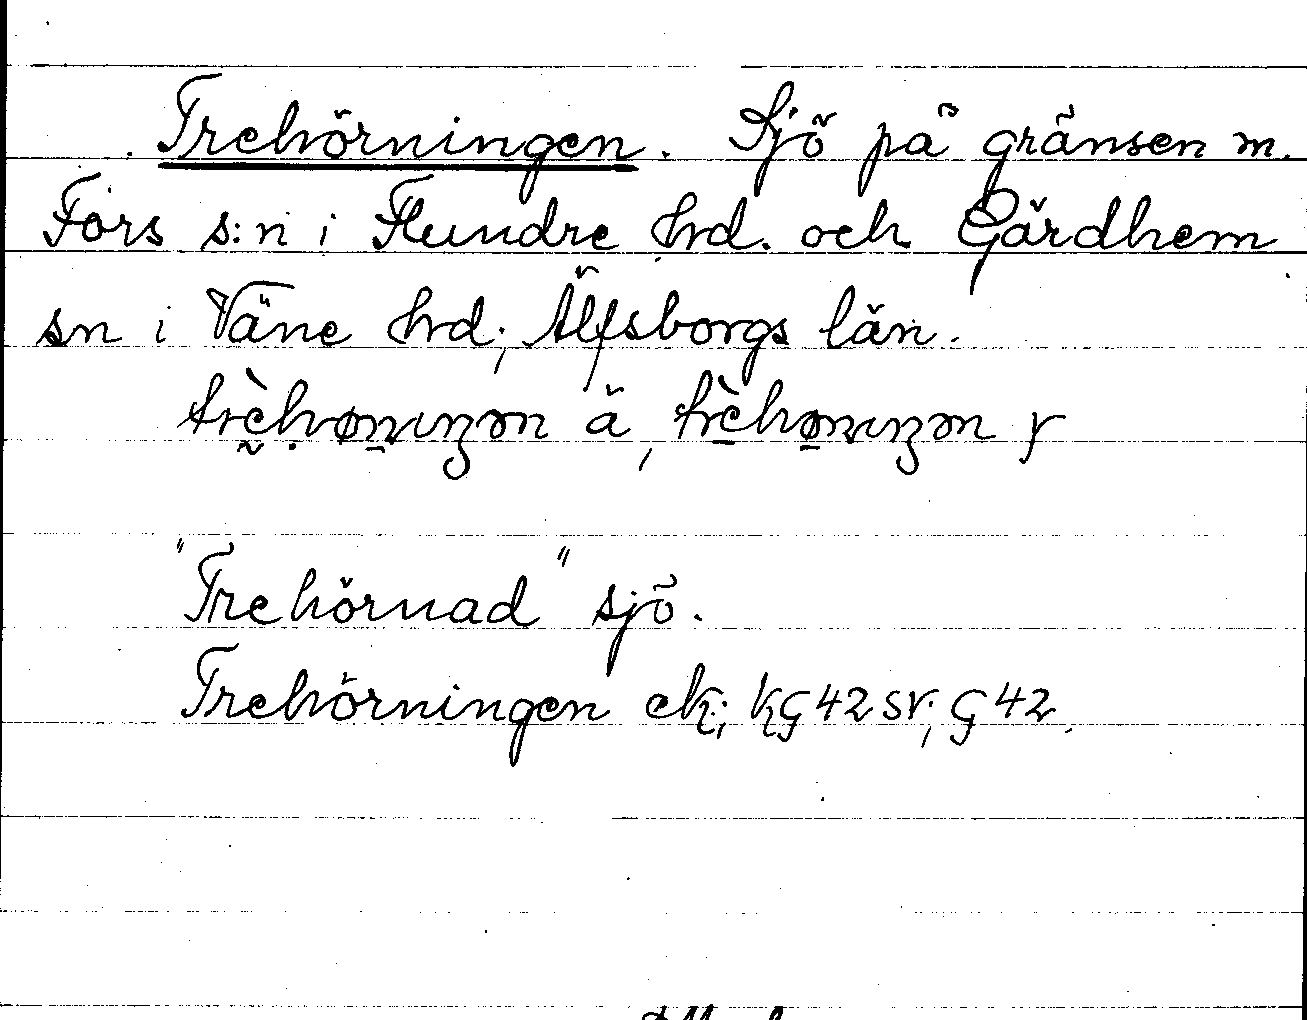 Trehörningen. Sjö på gränsen m.
Fors s:n i Flundre hrd. och Gärdhem
sn i Väne hrd; Älfsborgs län.
trèhønıŋən ä, trèhønıŋən y
"Trehörnad" sjö.
Trehörningen ek; KG 42 sv; G 42.